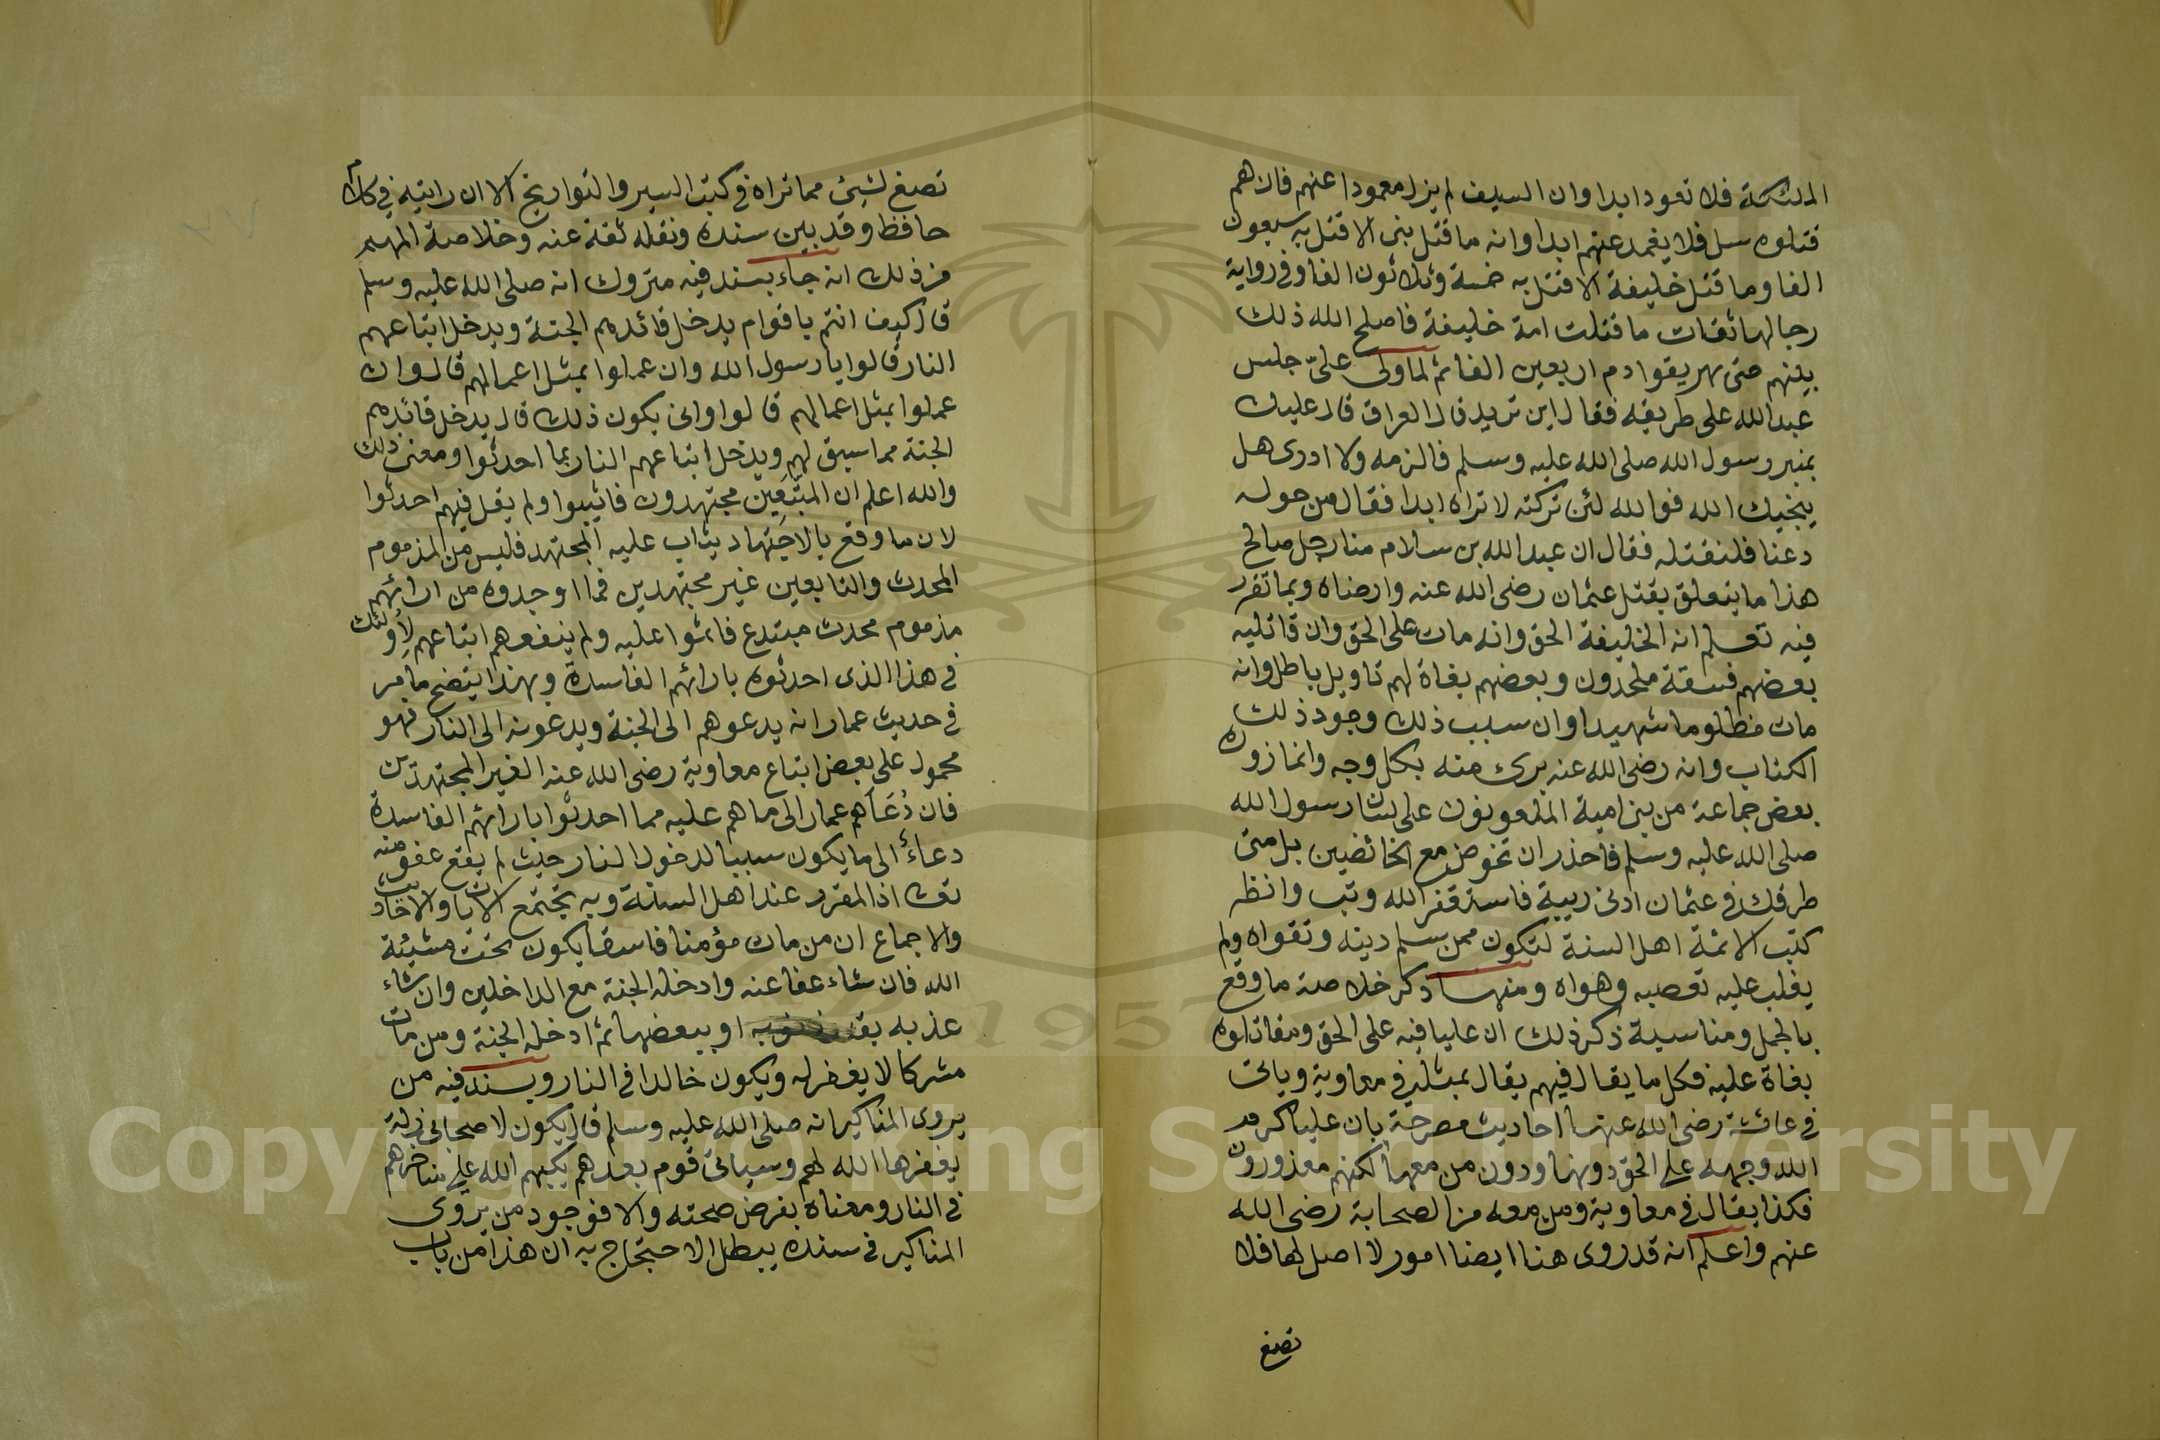 الملئكة فلا تعود ابدا وان السيف لم يزل مغمودا عنهم فان هم
قتلوه سل فلا يغمد عنهم ابدا وانه ما قتل نبي الا قتل به سبعون
الفا وما قتل خليفة الا قتل به خمسة وثلاثون الفا وفي رواية
رجالها ثقات ما قتلت امة خليفة فاصلح الله ذلك
بينهم حتى يهريقوا دم اربعين الفا ثم لما ولى على جلس
عبد الله على طريقه فقال اين تريد قال العراق قال عليك
بمنبر رسول الله صلى الله عليه وسلم فالزمه ولا ادرى هل
ينجيك الله فوالله لئن تركته لا تراه ابدا فقال من حوله
دعنا فلنقتله فقال ان عبد الله بن سلام منا رجل صالح
هذا ما يتعلق بقتل عثمان رضى الله عنه وارضاه وبما تقرر
فيه تعلم انه الخليفة الحق وانه مات على الحق وان قاتليه
بعضهم فسقة ملحدون وبعضهم بغاة لهم تاويل باطل وانه
مات مظلوما شهيدا وان سبب ذلك وجود ذلك
الكتاب وانه رضى الله عنه برئ منه بكل وجه وانما زوره
بعض جماعة من بنى امية الملعونون على لسان رسول الله
صلى الله عليه وسلم فاحذر ان تخوض مع الخائضين بل متى
طرقك في عثمان ادنى ريبة فاستغفر الله وتب وانظر
كتب الائمة اهل السنة لتكون ممن سلم دينه وتقواه ولم
يغلب عليه تعصبه وهواه ومنها ذكر خلاصة ما وقع
بالجمل ومناسبة ذكر ذلك ان عليا فيه على الحق ومقاتلوه
بغاة عليه فكل ما يقال فيهم يقال بمثله في معاوية وياتى
في عائشة رضى الله عنها احاديث مصرحة بان عليا كرم
الله وجهه على الحق دونها ودون من معها لكنهم معذورون
فكذا يقال في معاوية ومن معه من الصحابة رضى الله
عنهم واعلم انه قد روى هنا ايضا امور لا اصل لها فلا
تصغ
تصغ لشئ مما تراه في كتب السير والتواريخ الا ان رايته في كلام
حافظ وقد بين سنده ونقله ثقة عنه وخلاصة المهم
من ذلك انه جاء بسند فيه متروك انه صلى الله عليه وسلم
قال كيف انتم باقوام يدخل قائدهم الجنة ويدخل اتباعهم
النار قالوا يا رسول الله وان عملوا بمثل اعمالهم قال وان
عملوا بمثل اعمالهم قالوا وانى يكون ذلك قال يدخل قائدهم
الجنة مما سبق لهم ويدخل اتباعهم النار بما احدثوا ومعنى ذلك
والله اعلم ان المتبعين مجتهدون فاثيبوا ولم يقل فيهم احدثوا
لان ما وقع بالاجتهاد يثاب عليه المجتهد فليس من المذموم
المحدث والتابعين غير مجتهدين فما اوجدوه من ارائهم
مذموم محدث مبتدع فاثموا عليه ولم ينفعهم اتباعهم لاولئك
في هذا الذى احدثوه بارائهم الفاسدة وبهذا يتضح ما مر
في حديث عمار انه يدعوهم الى الجنة ويدعونه الى النار فهو
محمول على بعض اتباع معاوية رضى الله عنه الغير المجتهدين
فان دعاهم عمار الى ما هم عليه مما احدثوا بارائهم الفاسدة
دعاء الى ما يكون سببا لدخول النار حيث لم يقع عفو منه
تعالى اذ المقرر عند اهل السنة وبه تجتمع الايات والاحاديث
والاجماع ان من مات مؤمنا فاسقا يكون تحت مشيئة
الله فان شاء عفا عنه وادخله الجنة مع الداخلين وان شاء
عذبه بقدر ذنوبه او ببعضها ثم ادخله الجنة ومن مات
مشركا لا يغفر له ويكون خالدا في النار وبسند فيه من
يروى المناكير انه صلى الله عليه وسلم قال يكون لاصحابى زلة
يغفرها الله لهم وسياتى قوم بعدهم يكبهم الله على مناخرهم
في النار ومعناه بفرض صحته والا فوجود من يروى
المناكير في سنده يبطل الاحتجاج به ان هذا من باب
Copyright © King Saud University
1957